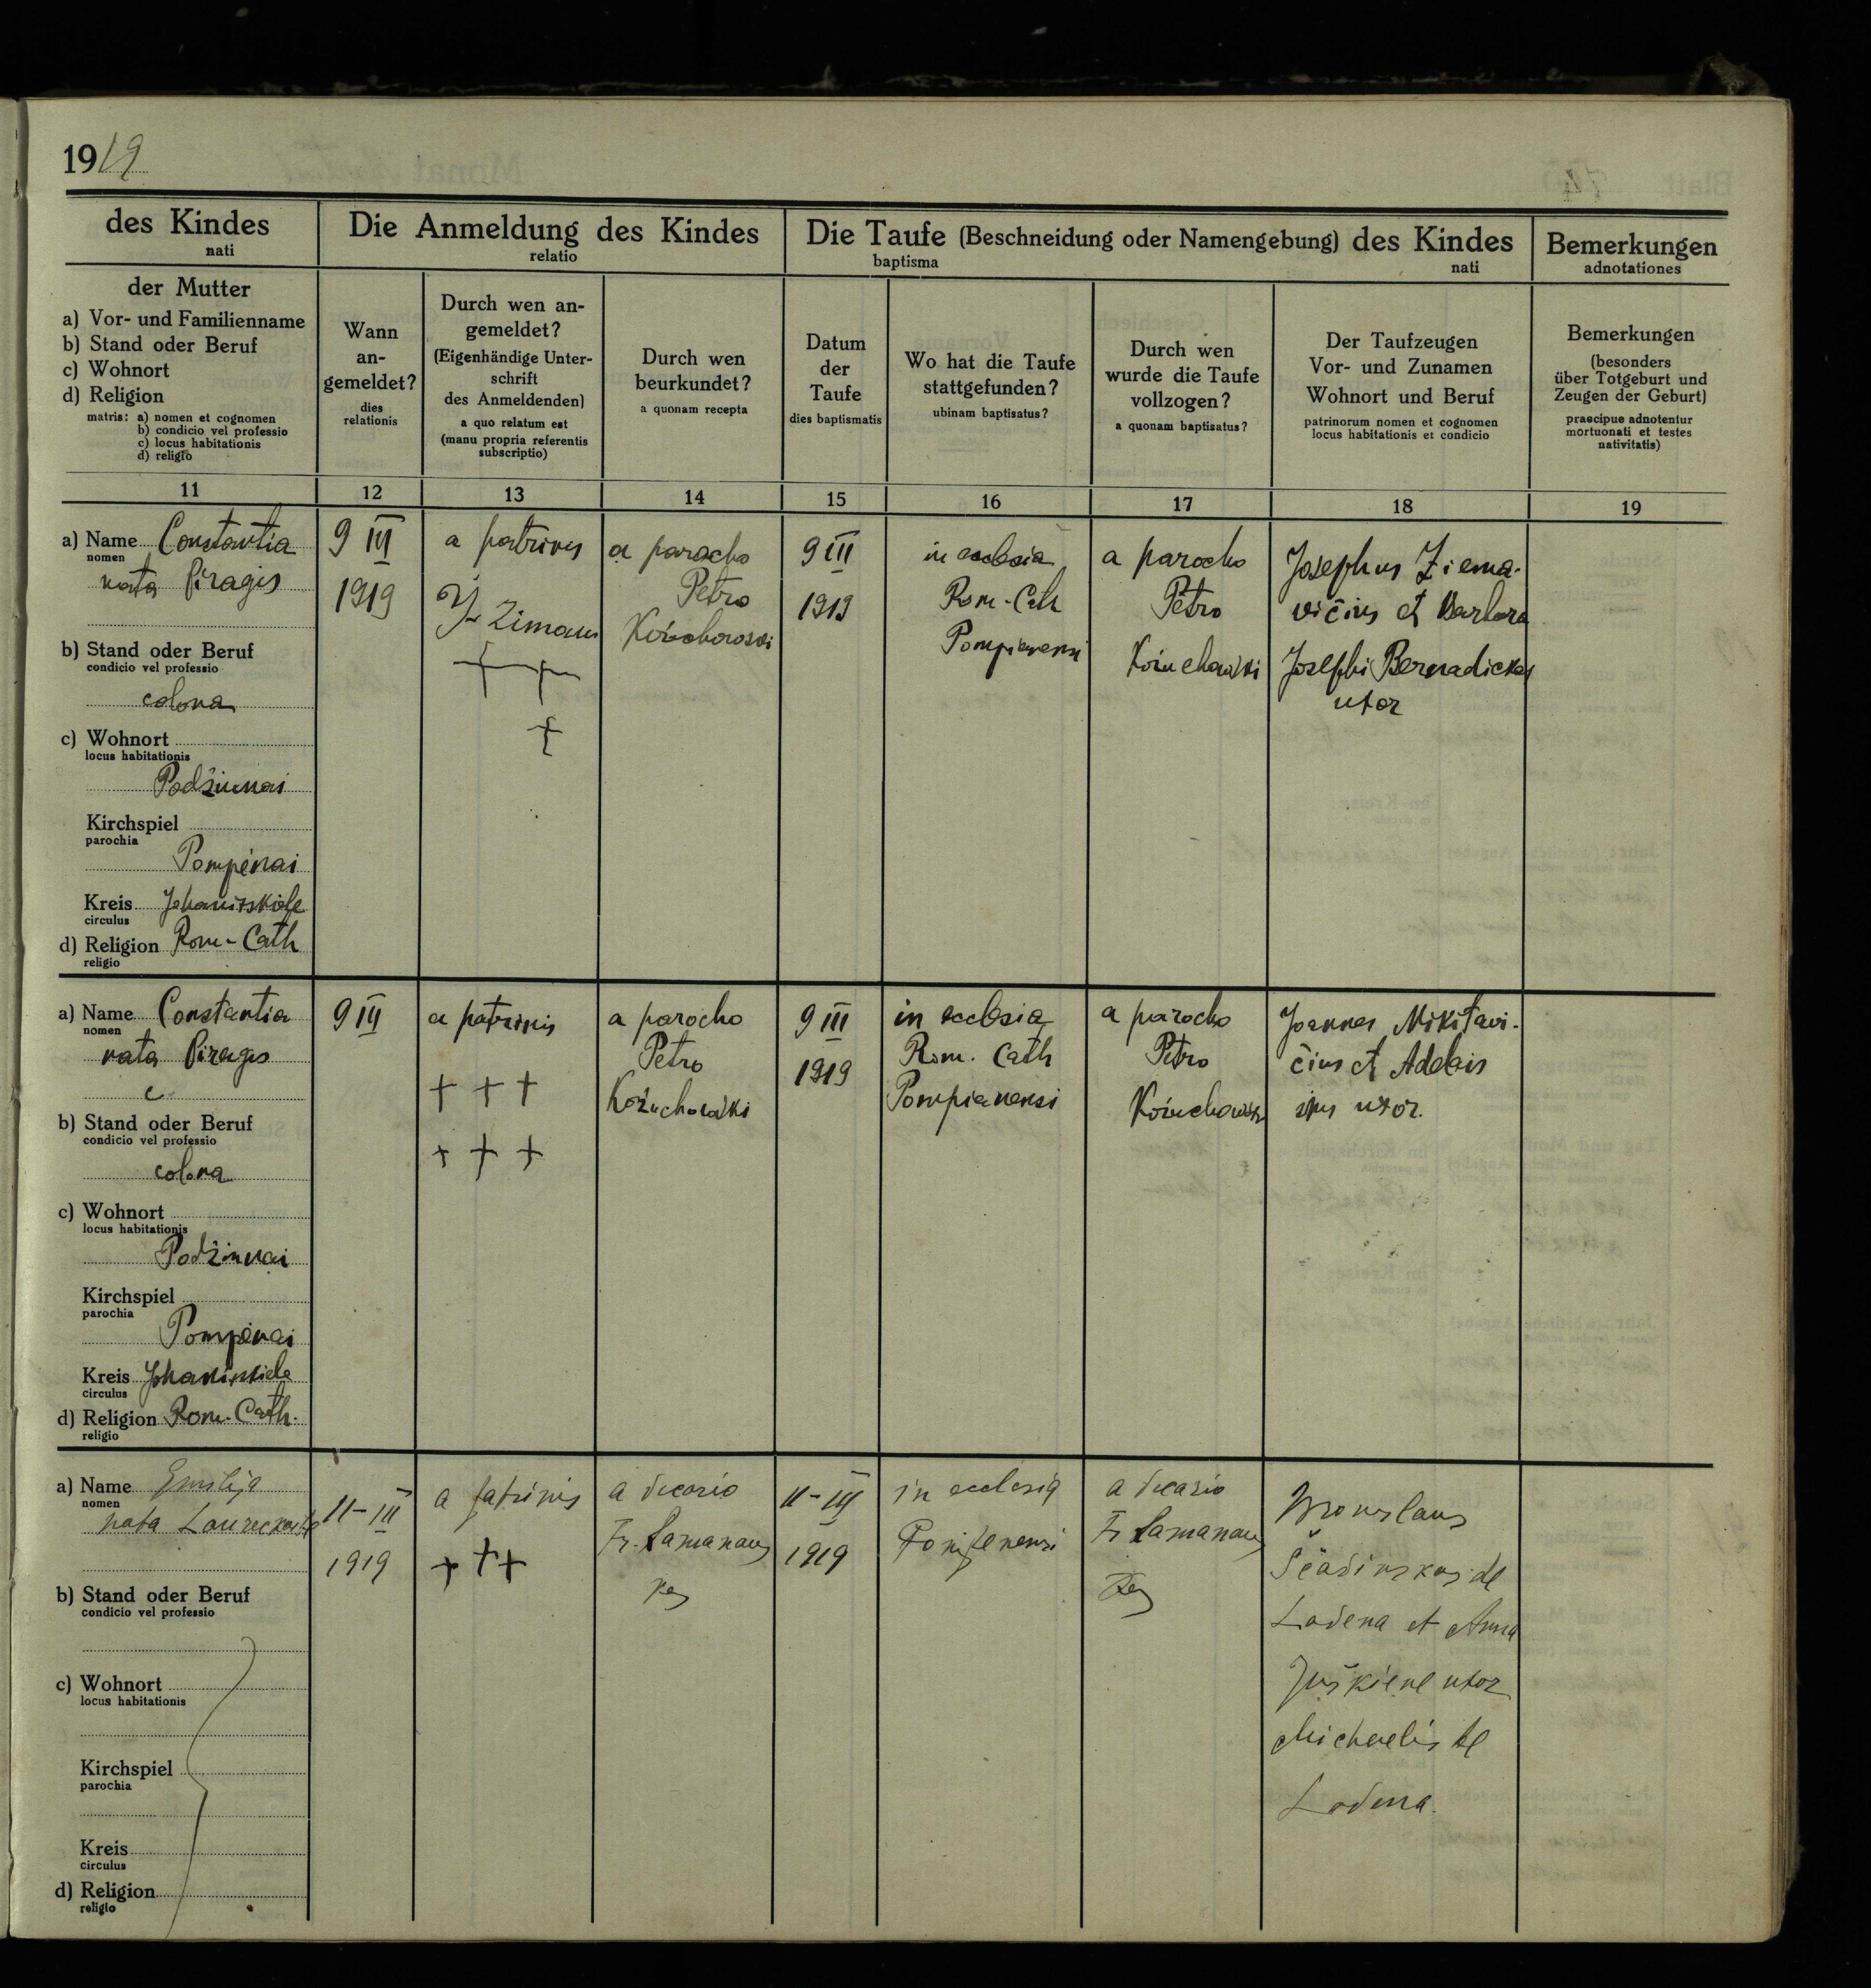 1919
des Kindes
nati
Die Anmeldung des Kindes
relatio
Die Taufe (Beschneidung oder Namengebung) des Kindes
baptisma
nati
Bemerkungen
adnotationes
der Mutter
a) Vor- und Familienname
b) Stand oder Beruf
c) Wohnort
d) Religion
matris: a) nomen et cognomen
b) condicio vel professio
c) locus habitationis
d) religio
Wann
an-
gemeldet?
dies
relationis
Durch wen an-
gemeldet?
(Eigenhändige Unter-
schrift
des Anmeldenden)
a quo relatum est
(manu propria referentis
subscriptio)
Durch wen
beurkundet?
a quonam recepta
Datum
der
Taufe
dies baptismatis
Wo hat die Taufe
stattgefunden?
ubinam baptisatus?
Durch wen
wurde die Taufe
vollzogen?
a quonam baptisatus?
Der Taufzeugen
Vor- und Zunamen
Wohnort und Beruf
patrinorum nomen et cognomen
locus habitationis et condicio
Bemerkungen
(besonders
über Totgeburt und
Zeugen der Geburt)
praecipue adnotentur
mortuonati et testes
nativitatis)
11
12
13
14
15
16
17
18
19
a) Name Constantia
nomen
nata Piragis
b) Stand oder Beruf
condicio vel professio
colona
c) Wohnort
locus habitationis
Podžiunai
Kirchspiel
parochia
Pompėnai
Kreis Johaniskiele
circulus
d) Religion Rom-Cath
religio
9 III
1919
a patrinis
a parocho
Petro
Kožuchowski
9 III
1919
in ecclesia
Rom-Cath
Pompianensi
a parocho
Petro
Kožuchowski
Josephus Ziema-
vičius et Barbara
Josephi Bernadickas
uxor
a) Name Constantia
nomen
nata Piragis
b) Stand oder Beruf
condicio vel professio
colona
c) Wohnort
locus habitationis
Podžiunai
Kirchspiel
parochia
Pompėnai
Kreis Johaniskiele
circulus
d) Religion Rom-Cath.
religio
9 III
a patrinis
+ + +
+ + +
a parocho
Petro
Kožuchowski
9 III
1919
in ecclesia
Rom. Cath
Pompianensi
a parocho
Petro
Kožuchowski
Joannes Mikitavi-
čius et Adelais
ejus uxor.
a) Name Emilija
nomen
nata
b) Stand oder Beruf
condicio vel professio
c) Wohnort
locus habitationis
Kirchspiel
parochia
Kreis
circulus
d) Religion
religio
11-III
1919
a patrinis
+ + +
a vicario
Fr. Ramanaus
kas
11-III
1919
in ecclesia
Pompenensi
a vicario
Fr Ramanaus
kas
Bronislaus
de
Ladena et Anna
Juškiene uxor
Michaelis de
Ladena.